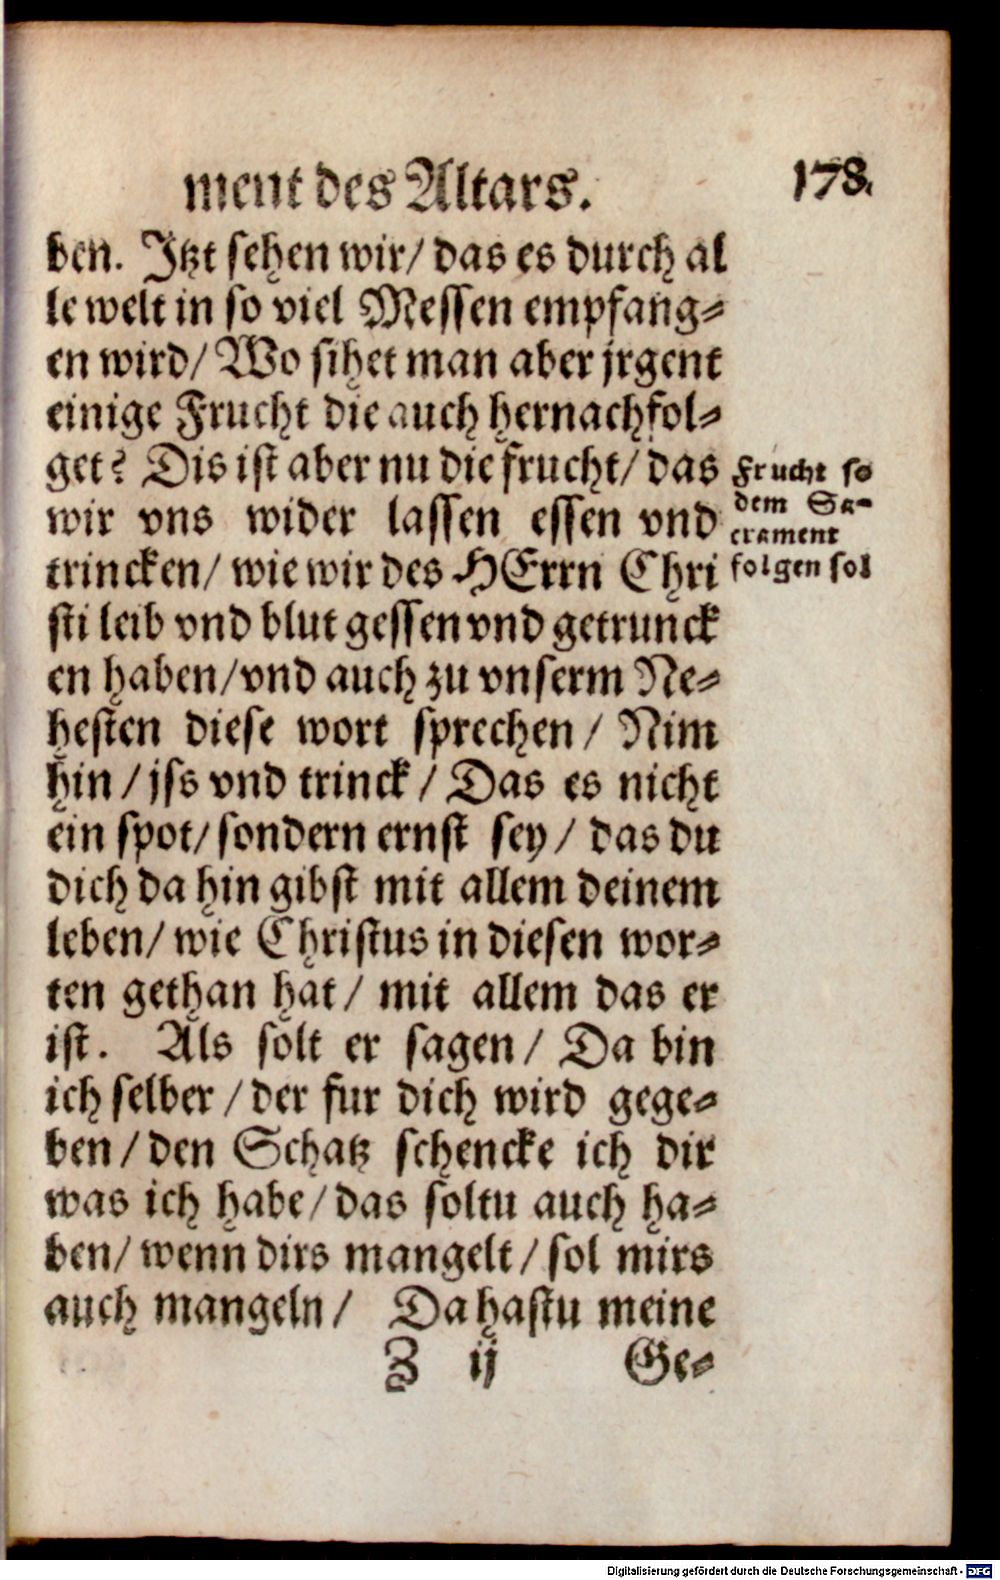 ment des Altars.
178.
ben. Jtzt sehen wir/ das es durch al
le welt in so viel Messen empfang⸗
en wird/ Wo sihet man aber jrgent
einige Frucht die auch hernachfol⸗
get? Dis ist aber nu die frucht/ das
wir vns wider lassen essen vnd
trincken/ wie wir des HErrn Chri
sti leib vnd blut gessen vnd getrunck
en haben/ vnd auch zu vnserm Ne⸗
hesten diese wort sprechen/ Nim
hin/ jss vnd trinck/ Das es nicht
ein spot/ sondern ernst sey/ das du
dich da hin gibst mit allem deinem
leben/ wie Christus in diesen wor⸗
ten gethan hat/ mit allem das er
ist. Als solt er sagen/ Da bin
ich selber/ der fur dich wird gege⸗
ben/ den Schatz schencke ich dir
was ich habe/ das soltu auch ha⸗
ben/ wenn dirs mangelt/ sol mirs
auch mangeln/ Da hastu meine
Z ij Ge⸗
Frucht so
dem Sa⸗
crament
folgen sol
Digitalisierung gefördert durch die Deutsche Forschungsgemeinschaft - DFG